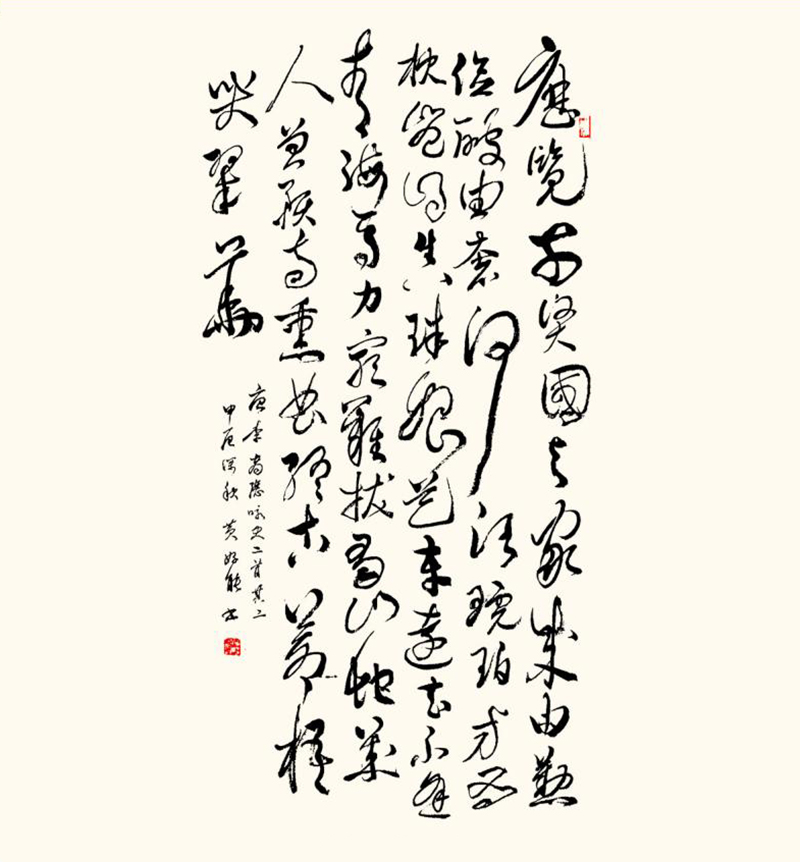 歷覽前賢國與家成由勤
儉破由奢何須琥珀方為
枕豈得真珠始是車運去不逢
青海馬力窮難拔蜀山蛇幾
人曾預南熏曲終古蒼梧
哭翠華
唐李商隱咏史二首其二
甲辰深秋 黃好能書